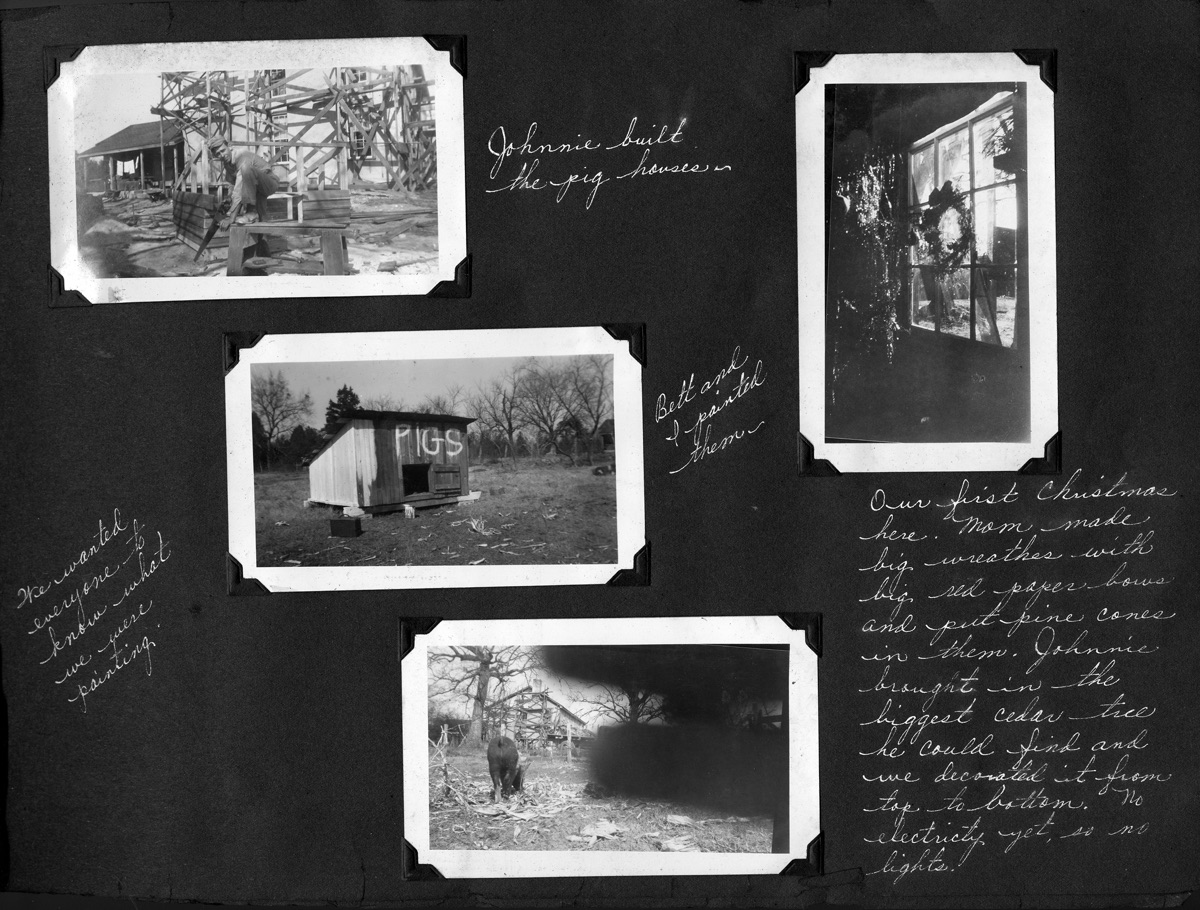 Johnnie built
the pig houses
PIGS
Bett and
I painted
them
We wanted
everyone to
know what
we were
painting.
Our first Christmas
here. Mom made
big wreathes with
big red paper bows
and put pine cones
in them. Johnnie
brought in the
biggest cedar tree
he could find and
we decorated it from
top to bottom. No
electricty yet, so no
lights.